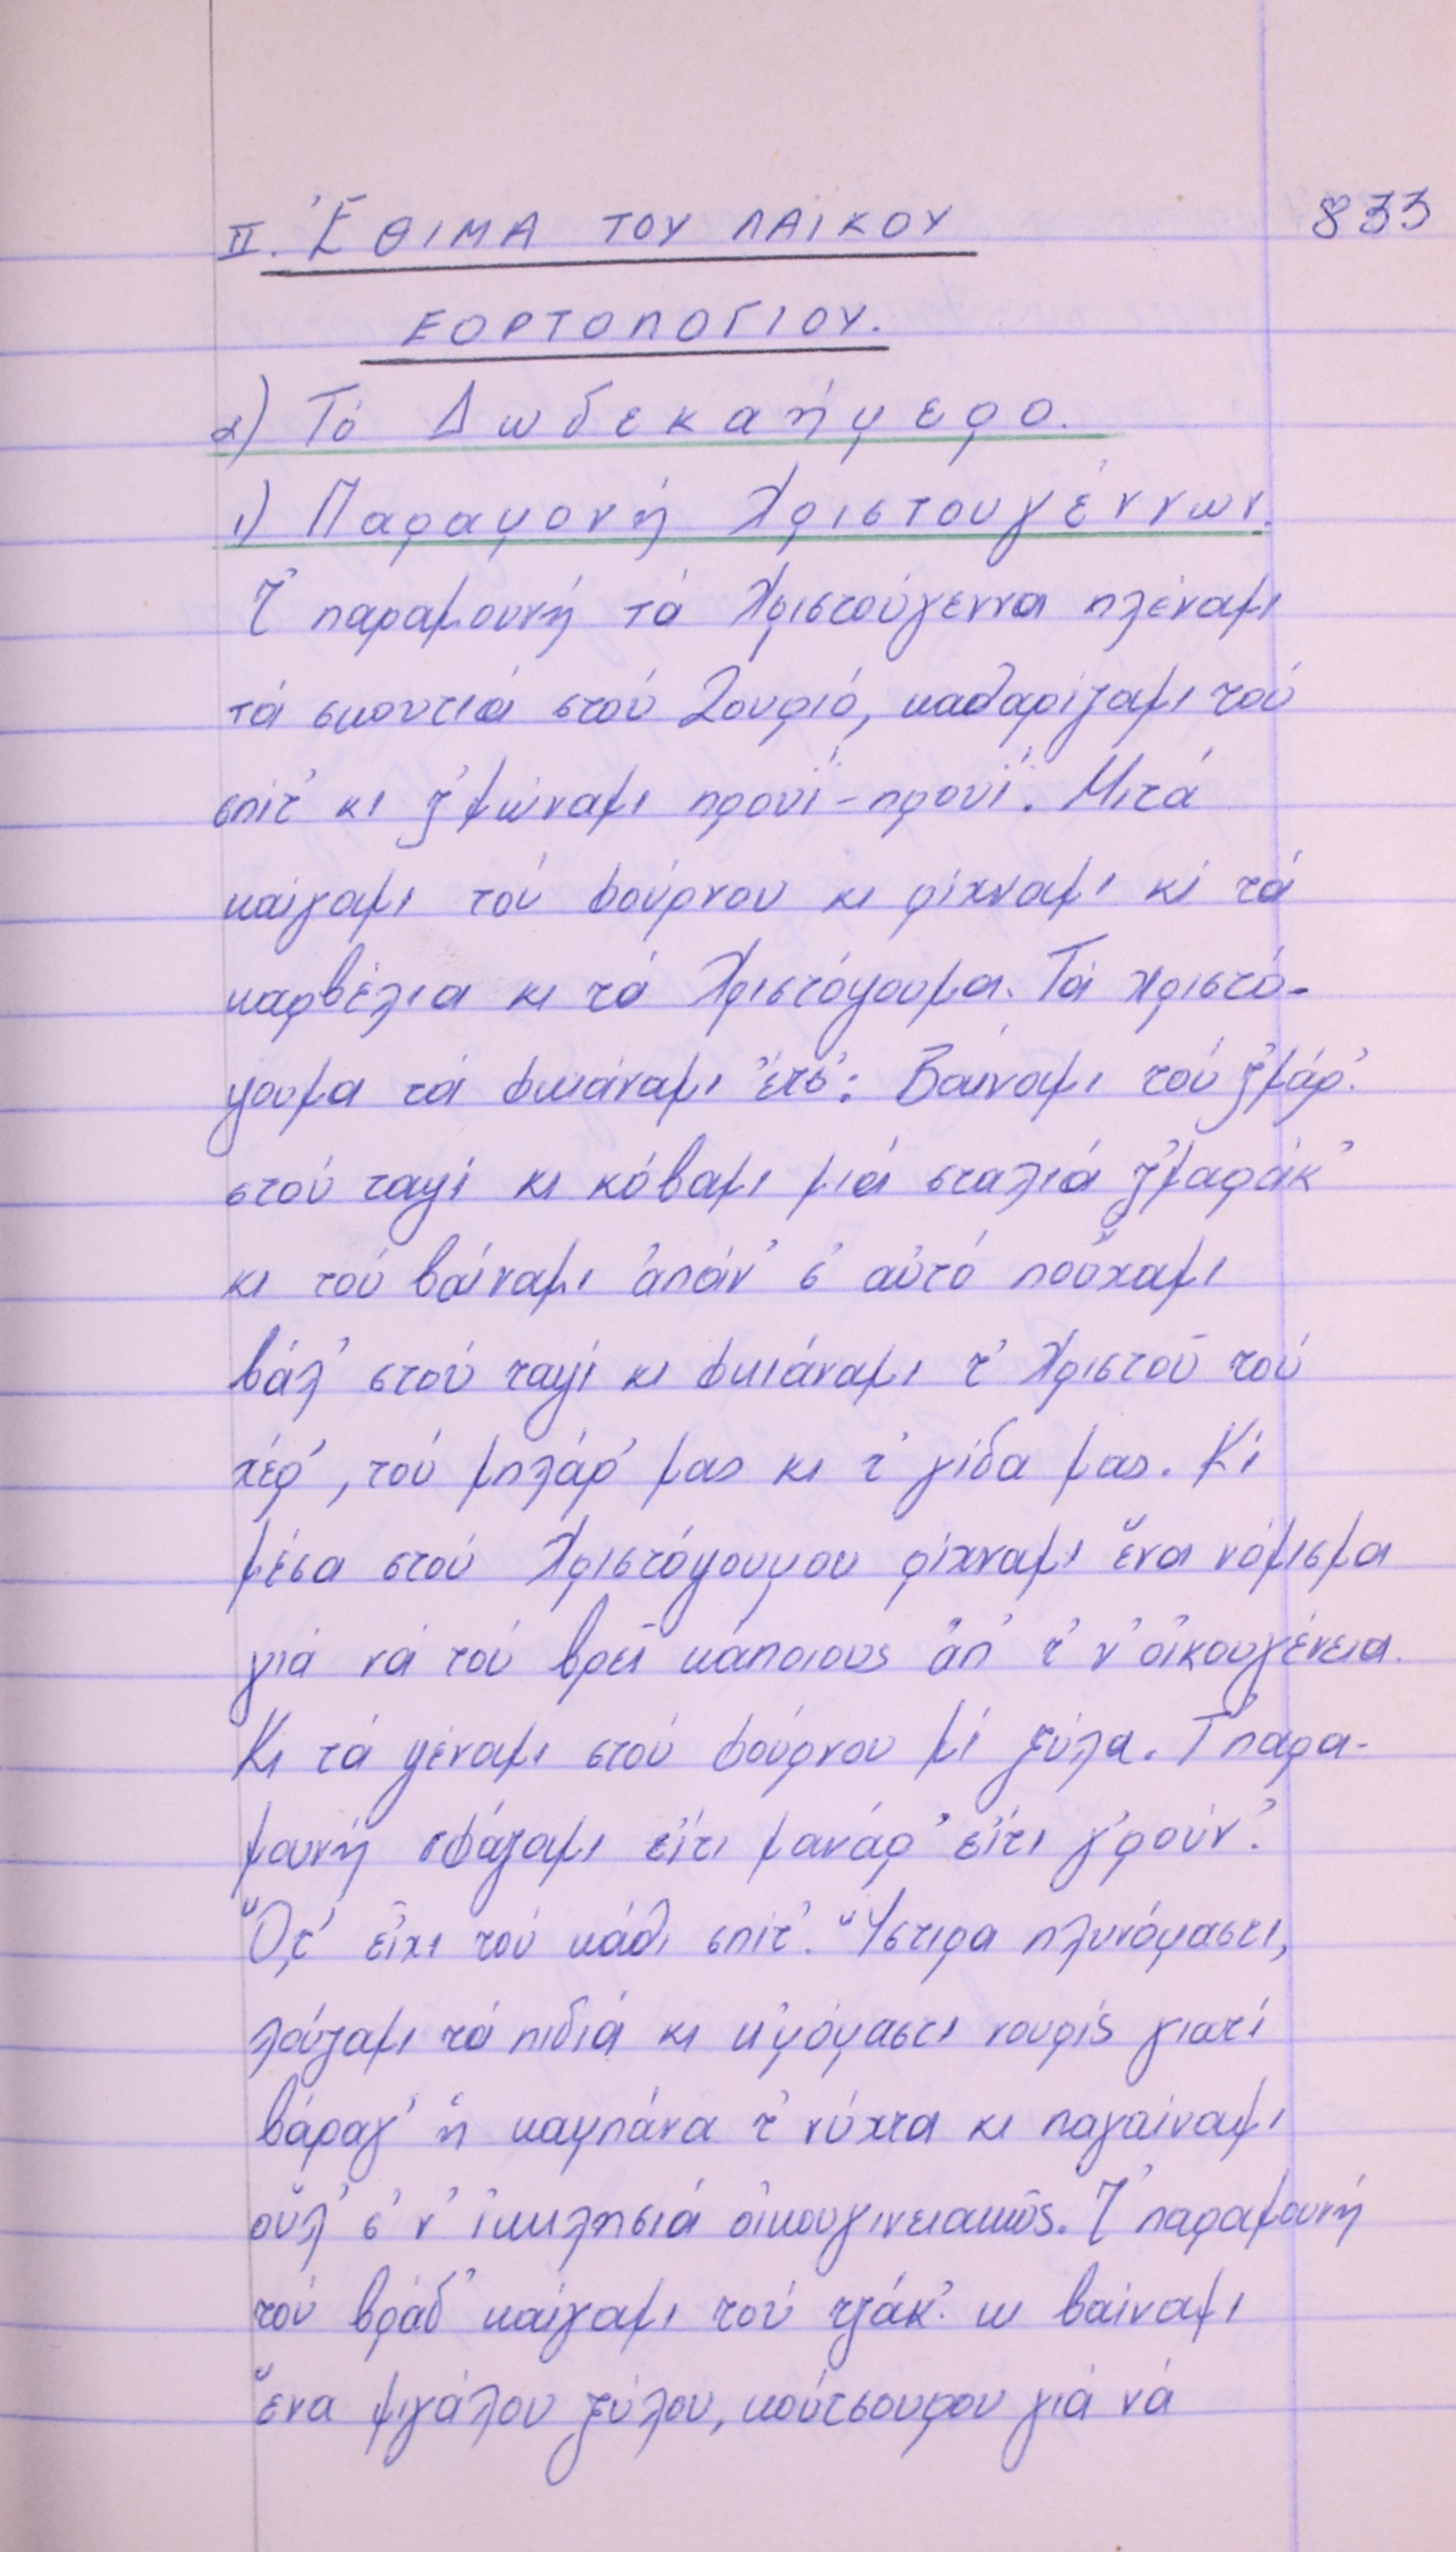 II. ἜΘΙΜΑ ΤΟΥ ΛΑΙΚΟΥ
833
ΕΟΡΤΟΛΟΓΙΟΥ.
α) Τό Δωδεκαήμερο.
1) Παραμονή Χριστουγέννων.
Τ' παραμουνή τά Χριστούγεννα πλέναμι
τά σκουτιά στού Σουφλιό, καθαρίζαμι τού
σπίτ' κι ζ'μώναμι πρωί-πρωί. Μιτά
καίγαμι τού φούρνου κι ρίχναμι κί τά
καρβέλια κι τά Χριστόψουμα. Τά χριστό-
ψουμα τά φκιάναμι ἔτσ': Βαίναμι τού ζ'μάρ'
στού ταψί κι κόβαμι μιά σταλιά ζ'μαράκ'
κι τού βάιναμι ἀπάν' σ' αὐτό ποὔχαμι
βάλ' στού ταψί κι φκιάναμι τ' Χριστοῦ τού
χέρ', τού μπλάρ' μας κι τ' γίδα μας. Κί
μέσα στού Χριστόψουμου ρίχναμι ἕνα νόμισμα
γιά νά τού βρεῖ κάποιους ἀπ' τ' ν' οἰκουγένεια.
Κι τά ψέναμι στού φούρνου μί ξύλα. Τ' παρα-
μουνή σφάζαμι εἴτι μανάρ' εἴτι γ'ρούν'.
Ὅ,τ' εἶχι τού κάθι σπίτ'. Ὕστιρα πλυνόμαστι,
λούζαμι τά πιδιά κι κ'μόμαστι νουρίς γιατί
βάραγ' ἡ καμπάνα τ' νύχτα κι παγαίναμι
οὕλ' σ' ν' ἰκκλησιά οἰκουγινειακῶς. Τ' παραμουνή
τού βράδ' καίγαμι τού τζάκ' κι βαίναμι
ἕνα μιγάλου ξύλου, κούτσουρου γιά νά